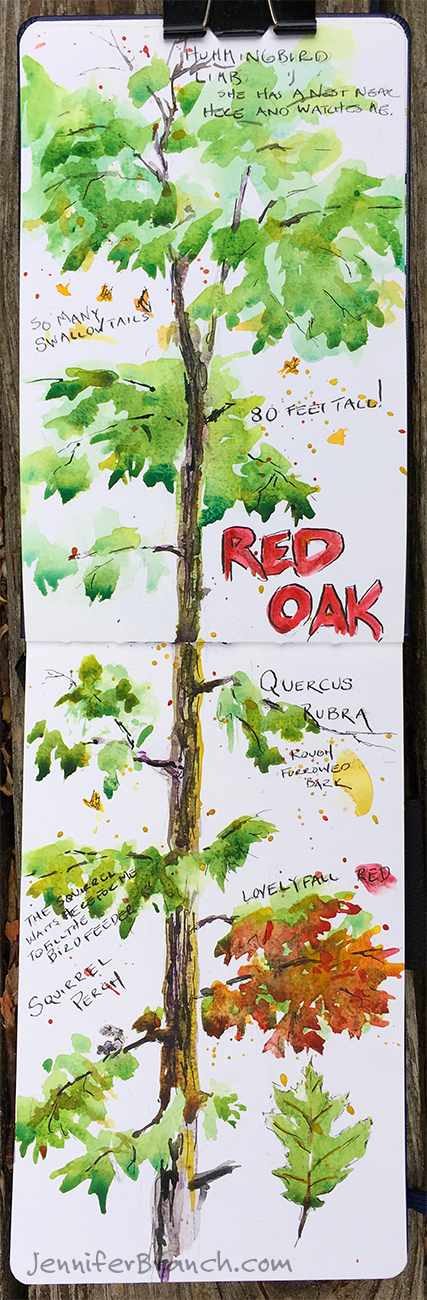 HUMMINGBIRD
LIMB
SHE HAS A NEST NEAR
HERE AND WATCHES ME.
SO MANY
SWALLOWTAILS
80 FEET TALL!
RED
OAK
QUERCUS
RUBRA
ROUGH
FURROWED
BARK
LOVELY FALL RED
THE SQUIRREL
WAITS HERE FOR ME
TO FILL THE
BIRD FEEDER
SQUIRREL
PERCH
JenniferBranch.com